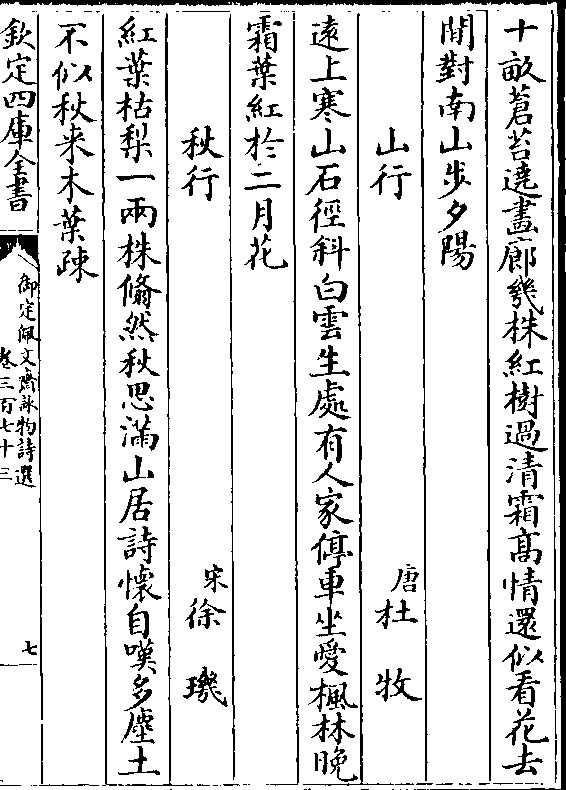 十畝蒼苔遶畫廊幾株紅樹過清霜髙情還似看花去
閒對南山步夕陽
山行
唐杜牧
逺上寒山石徑斜白雲生處有人家停車坐愛楓林晩
霜葉紅於二月花
秋行
宋徐璣
紅葉枯梨一兩株翛然秋思滿山居詩懷自嘆多塵土
不似秋来木葉疎
欽定四庫全書
御定佩文齋詠物詩選
卷三百七十三
七